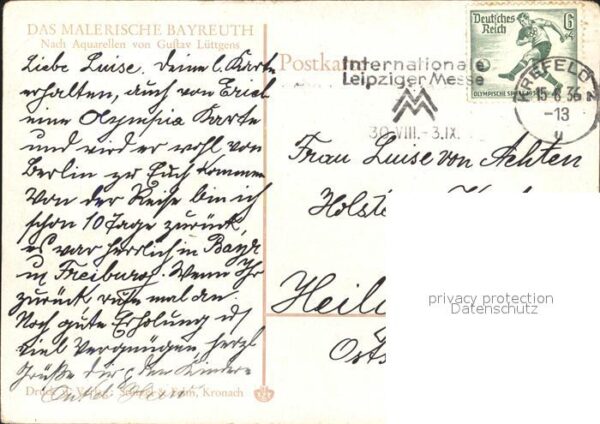 DAS MALERISCHE BAYREUTH
Nach Aquarellen von Gustav Lüttgens
Liebe Luise. Deine l. Karte
erhalten, auch von Erich
eine Olympia Karte
und wird er wohl von
Berlin zu Euch kommen
Von der Reise bin ich
schon 10 Tage zurück,
es war herrlich in Bayr.
u Freiburg. Wenn Ihr
zurück rufe mal an.
Noch gute Erholung u
viel Vergnügen, herzl
Grüße dir, den Kindern
Druck u. Verlag: & Kronach
Postka
Internationale
Leipziger Messe
MM
30.VIII.-3.IX.
Deutsches
Reich
6
OLYMPISCHE SPIELE 1936
KREFELD 2
15 8 36
-13
u
Frau Luise von Achten
Holste
Heil
Osts
privacy protection
Datenschutz